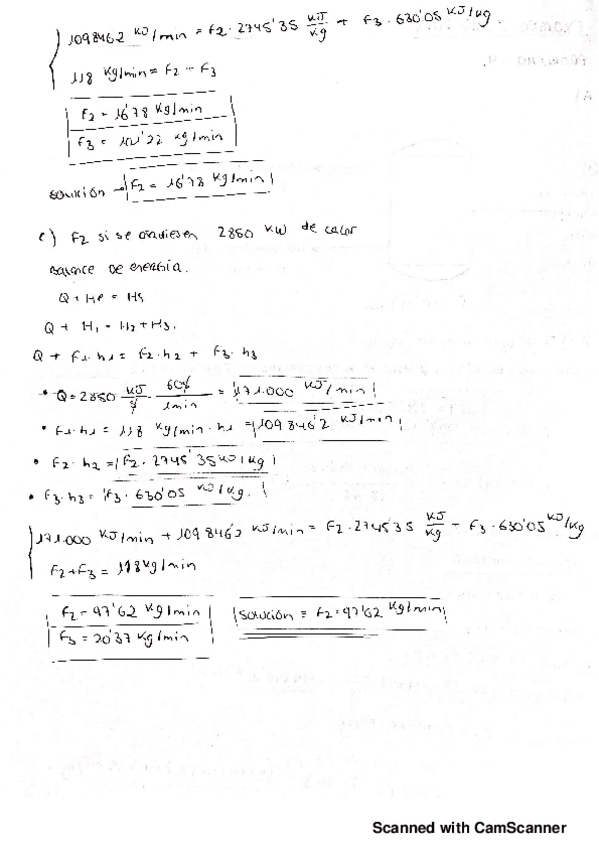 109846'2 KJ/min = F2 · 2745'35 KJ/kg + F3 · 630'05 KJ/kg.
118 kg/min = F2 + F3
F2 = 16'78 kg/min
F3 = 101'22 kg/min
solución → F2 = 16'78 kg/min
c) F2 si se añadiesen 2850 KW de calor
Balance de energía.
Q + He = Hs
Q + H1 = H2 + H3.
Q + F1·h1 = F2·h2 + F3·h3
• Q = 2850 KJ/s · 60s/1min = 171.000 KJ/min
• F1·h1 = 118 kg/min · h1 = 109846'2 KJ/min
• F2·h2 = F2 · 2745'35 KJ/kg
• F3·h3 = F3 · 630'05 KJ/kg.
171.000 KJ/min + 109846'2 KJ/min = F2 · 2745'35 KJ/kg + F3 · 630'05 KJ/kg
F2 + F3 = 118 kg/min
F2 = 97'62 kg/min solución = F2 = 97'62 kg/min
F3 = 20'37 kg/min
Scanned with CamScanner